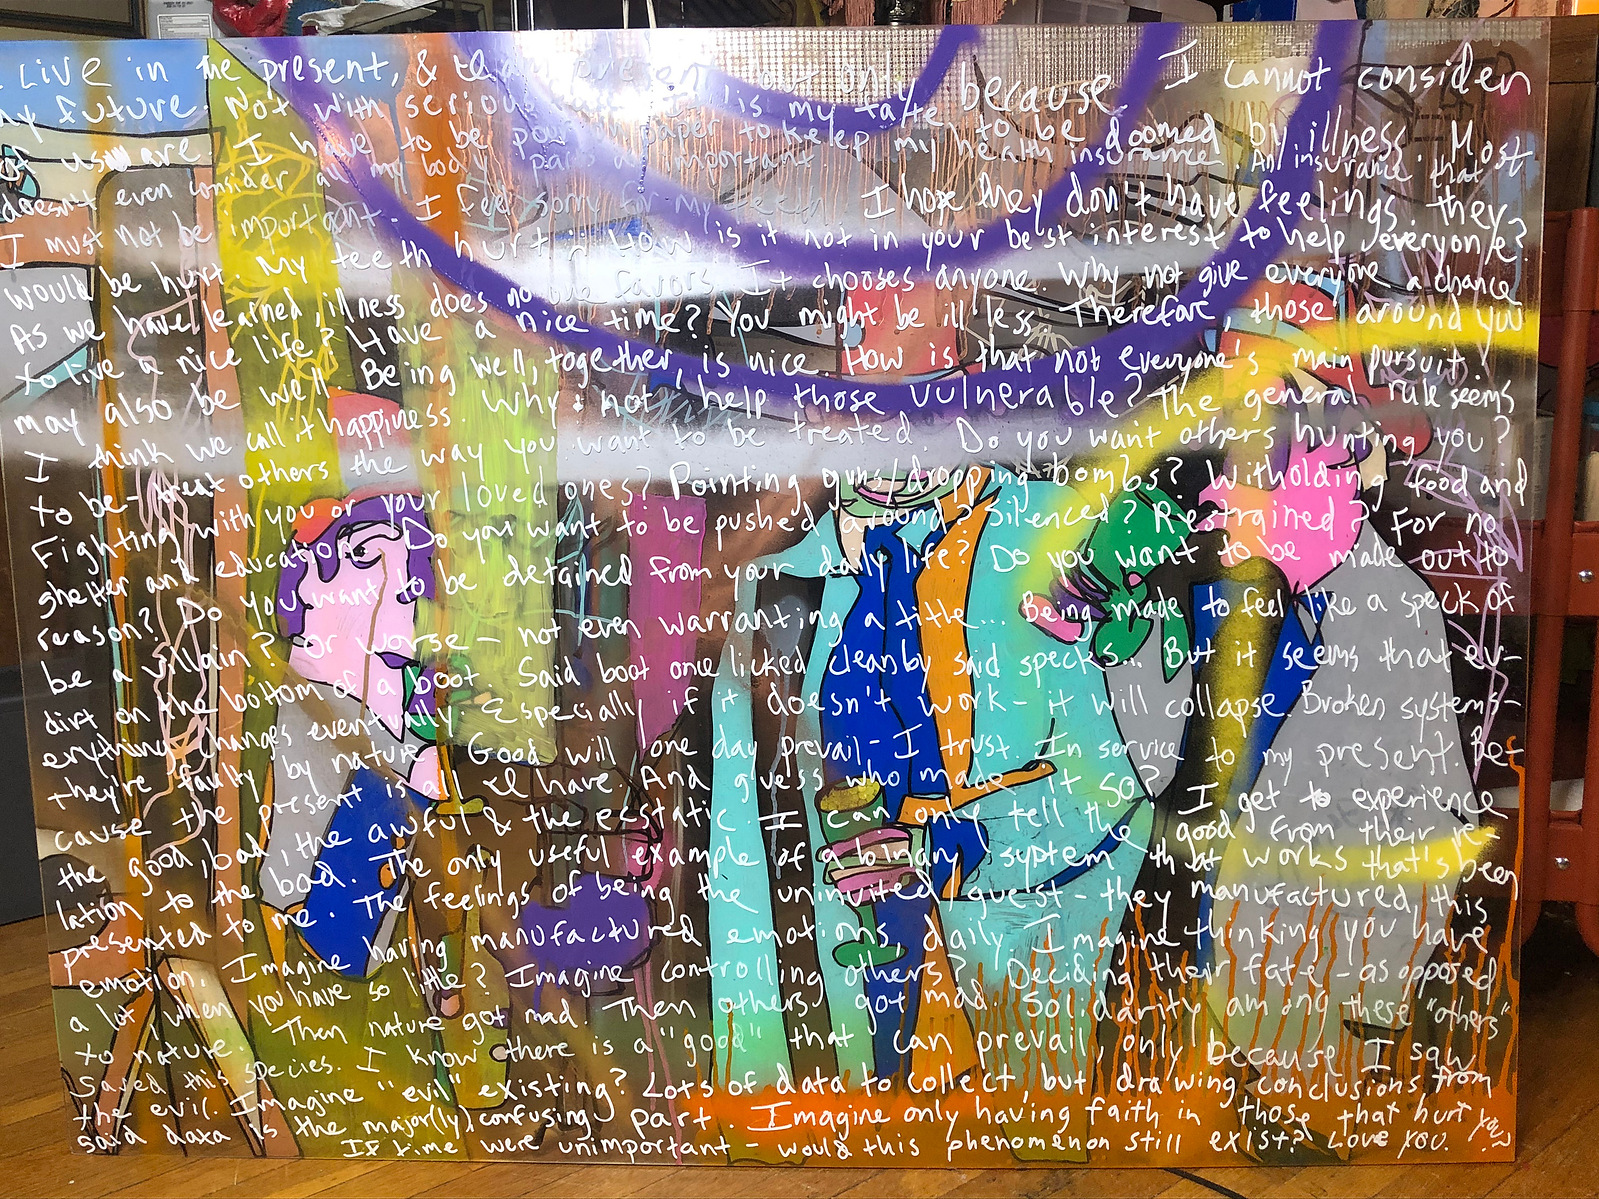 I Live in the present, & only because I cannot consider
my future. Not with serious is my fate to be doomed by illness. Most
of us are. I have to be on paper to keep my health insurance. An insurance that
doesn't even consider all my body parts as important. I hope they don't have feelings. they
I must not be important. I feel sorry for my teeth
would be hurt. My teeth hurt. How is it not in your best interest to help everyone?
As we have learned, illness does no one favors. It chooses anyone. Why not give everyone a chance
to live a nice life? Have a nice time? You might be ill less. Therefore, those around you
may also be well. Being well, together, is nice. How is that not everyone's main pursuit?
I think we call it happiness. Why not help those vulnerable? The general rule seems
to be - treat others the way you want to be treated. Do you want others hunting you?
Fighting with you or your loved ones? Pointing guns/dropping bombs? Witholding food and
shelter and education. Do you want to be pushed around? Silenced? Restrained? For no
reason? Do you want to be detained from your daily life? Do you want to be made out to
be a villain? Or worse - not even warranting a title... Being made to feel like a speck of
dirt on the bottom of a boot. Said boot once licked clean by said specks... But it seems that ev-
erything changes eventually. Especially if it doesn't work - it will collapse. Broken systems -
they're faulty by nature. Good will one day prevail - I trust. In service to my present. Be-
cause the present is all I have. And guess who made it so? I get to experience
the good, bad, the awful & the ecstatic. I can only tell the good from their re-
lation to the bad. The only useful example of a binary system that works that's been
presented to me. The feelings of being the uninvited guest - they manufactured this
emotion. Imagine having manufactured emotions, daily. Imagine thinking you have
a lot when you have so little? Imagine controlling others? Deciding their fate - as opposed
to nature. Then nature got mad. Then others got mad. Solidarity among these "others"
Saved this species. I know there is a "good" that can prevail, only because I saw
the evil. Imagine "evil" existing? Lots of data to collect but drawing conclusions from
said data is the major(ly) confusing part. Imagine only having faith in those that hurt you
If time were unimportant - would this phenomenon still exist? Love you.